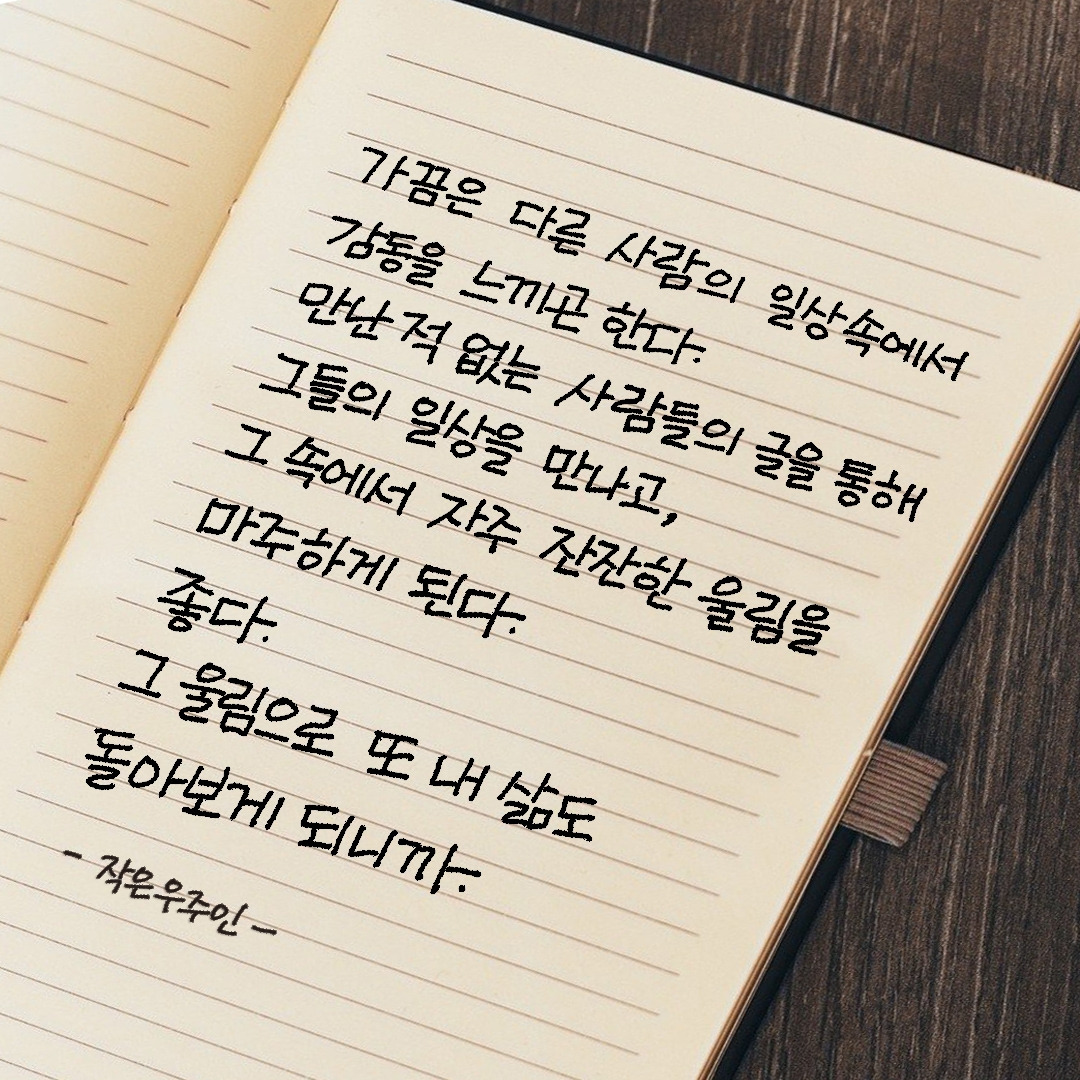 가끔은 다른 사람의 일상속에서
감동을 느끼곤 한다.
만난 적 없는 사람들의 글을 통해
그들의 일상을 만나고,
그 속에서 자주 잔잔한 울림을
마주하게 된다.
좋다.
그 울림으로 또 내 삶도
돌아보게 되니까.
- 작은우주인 -